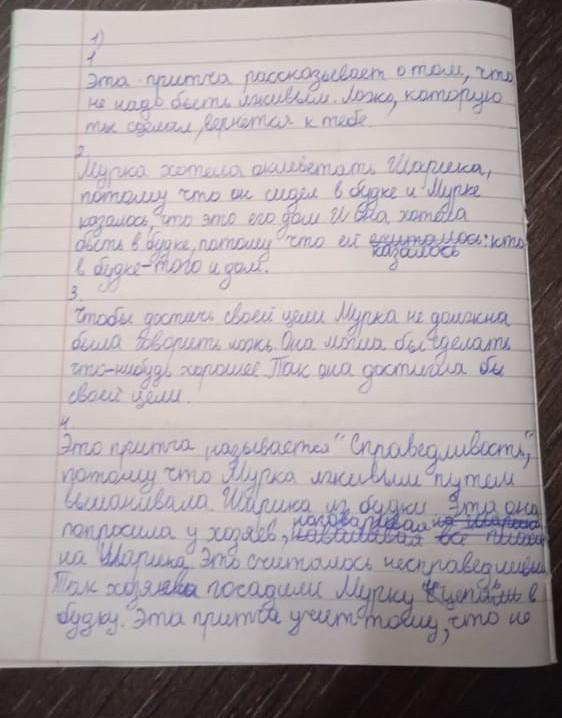 1)
1
Эта притча рассказывает о том, что
не надо быть лживым. Ложь, которую
ты сделал, вернётся к тебе.
2.
Мурка хотела оклеветать Шарика,
потому что он сидел в будке и Мурке
казалось, что это его дом. И она хотела
быть в будке, потому что ей считалось: кто
казалось
в будке-того и дом.
3.
Чтобы достичь своей цели Мурка не должна
была говорить ложь. Она могла бы сделать
что-нибудь хорошее. Так она достигла бы
своей цели.
4.
Это притча называется "Справедливость",
потому что Мурка лживым путём
выманивала Шарика из будки. Эта она
попросила у хозяев, наговаривая
на Шарика. Это считалось несправедливым
Так хозяева посадили Мурку в
будку. Эта притча учит тому, что не